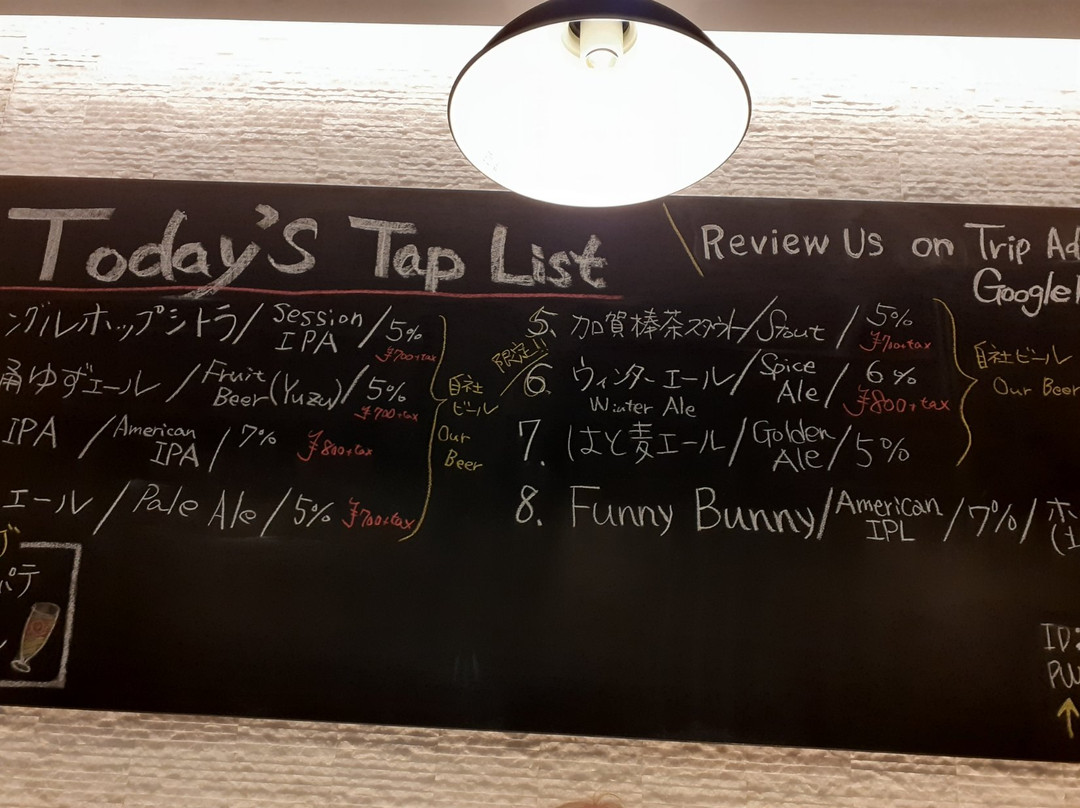 Today's Tap List
Review Us on Trip Ad
Google
ングルホップシトラ/ Session IPA / 5%
¥700+tax
ゆずエール / Fruit Beer (Yuzu) / 5%
¥700+tax
IPA / American IPA / 7% ¥800+tax
エール / Pale Ale / 5% ¥700+tax
自社ビール
Our Beer
5. 加賀棒茶スタウト / Stout / 5%
¥700+tax
限定!!
6. ウィンターエール / Spice Ale / 6%
Winter Ale
¥800+tax
7. はと麦エール / Golden Ale / 5%
自社ビール
Our Beer
8. Funny Bunny / American IPL / 7% / ホ
パテ
ID: